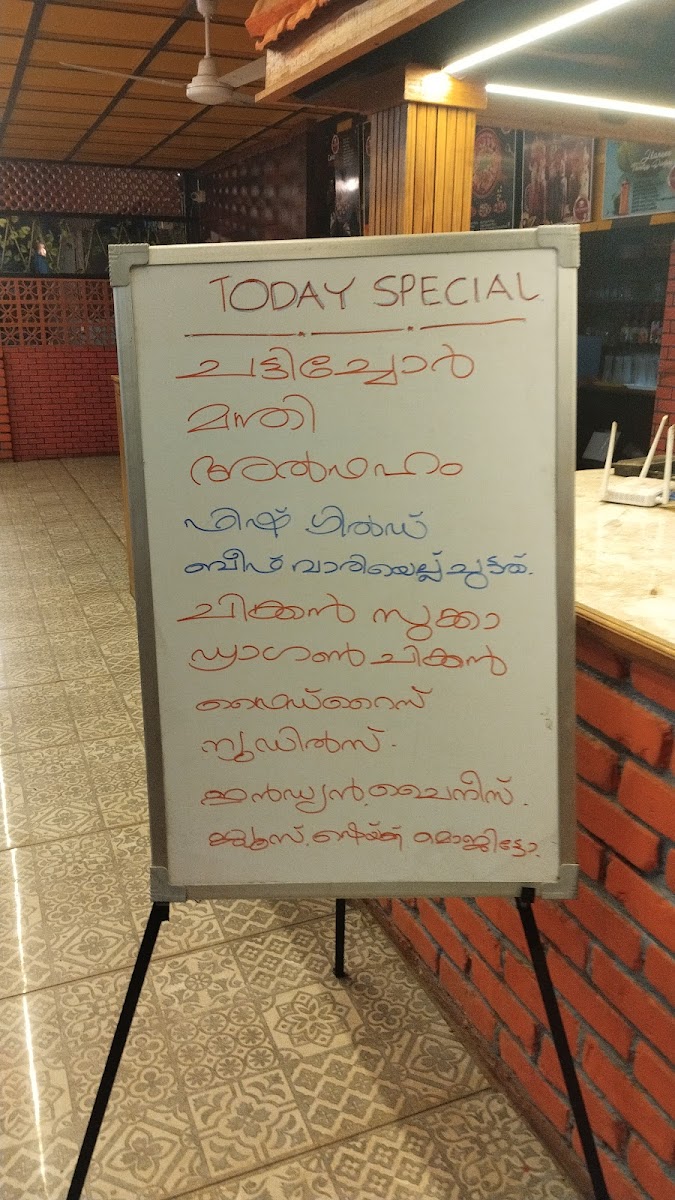 TODAY SPECIAL
ചട്ടിച്ചോർ
മന്തി
അൽഫഹം
ഫിഷ് ഗ്രിൽഡ്
ബീഫ് വാരിയെല്ല് ചുട്ടത്.
ചിക്കൻ സുക്കാ
ഡ്രാഗൺ ചിക്കൻ
ഫ്രൈഡ്റൈസ്
ന്യൂഡിൽസ്.
ഇൻഡ്യൻ, ചൈനീസ്.
ജ്യൂസ്, ഷെയ്ക്ക് മൊജിട്ടോ.